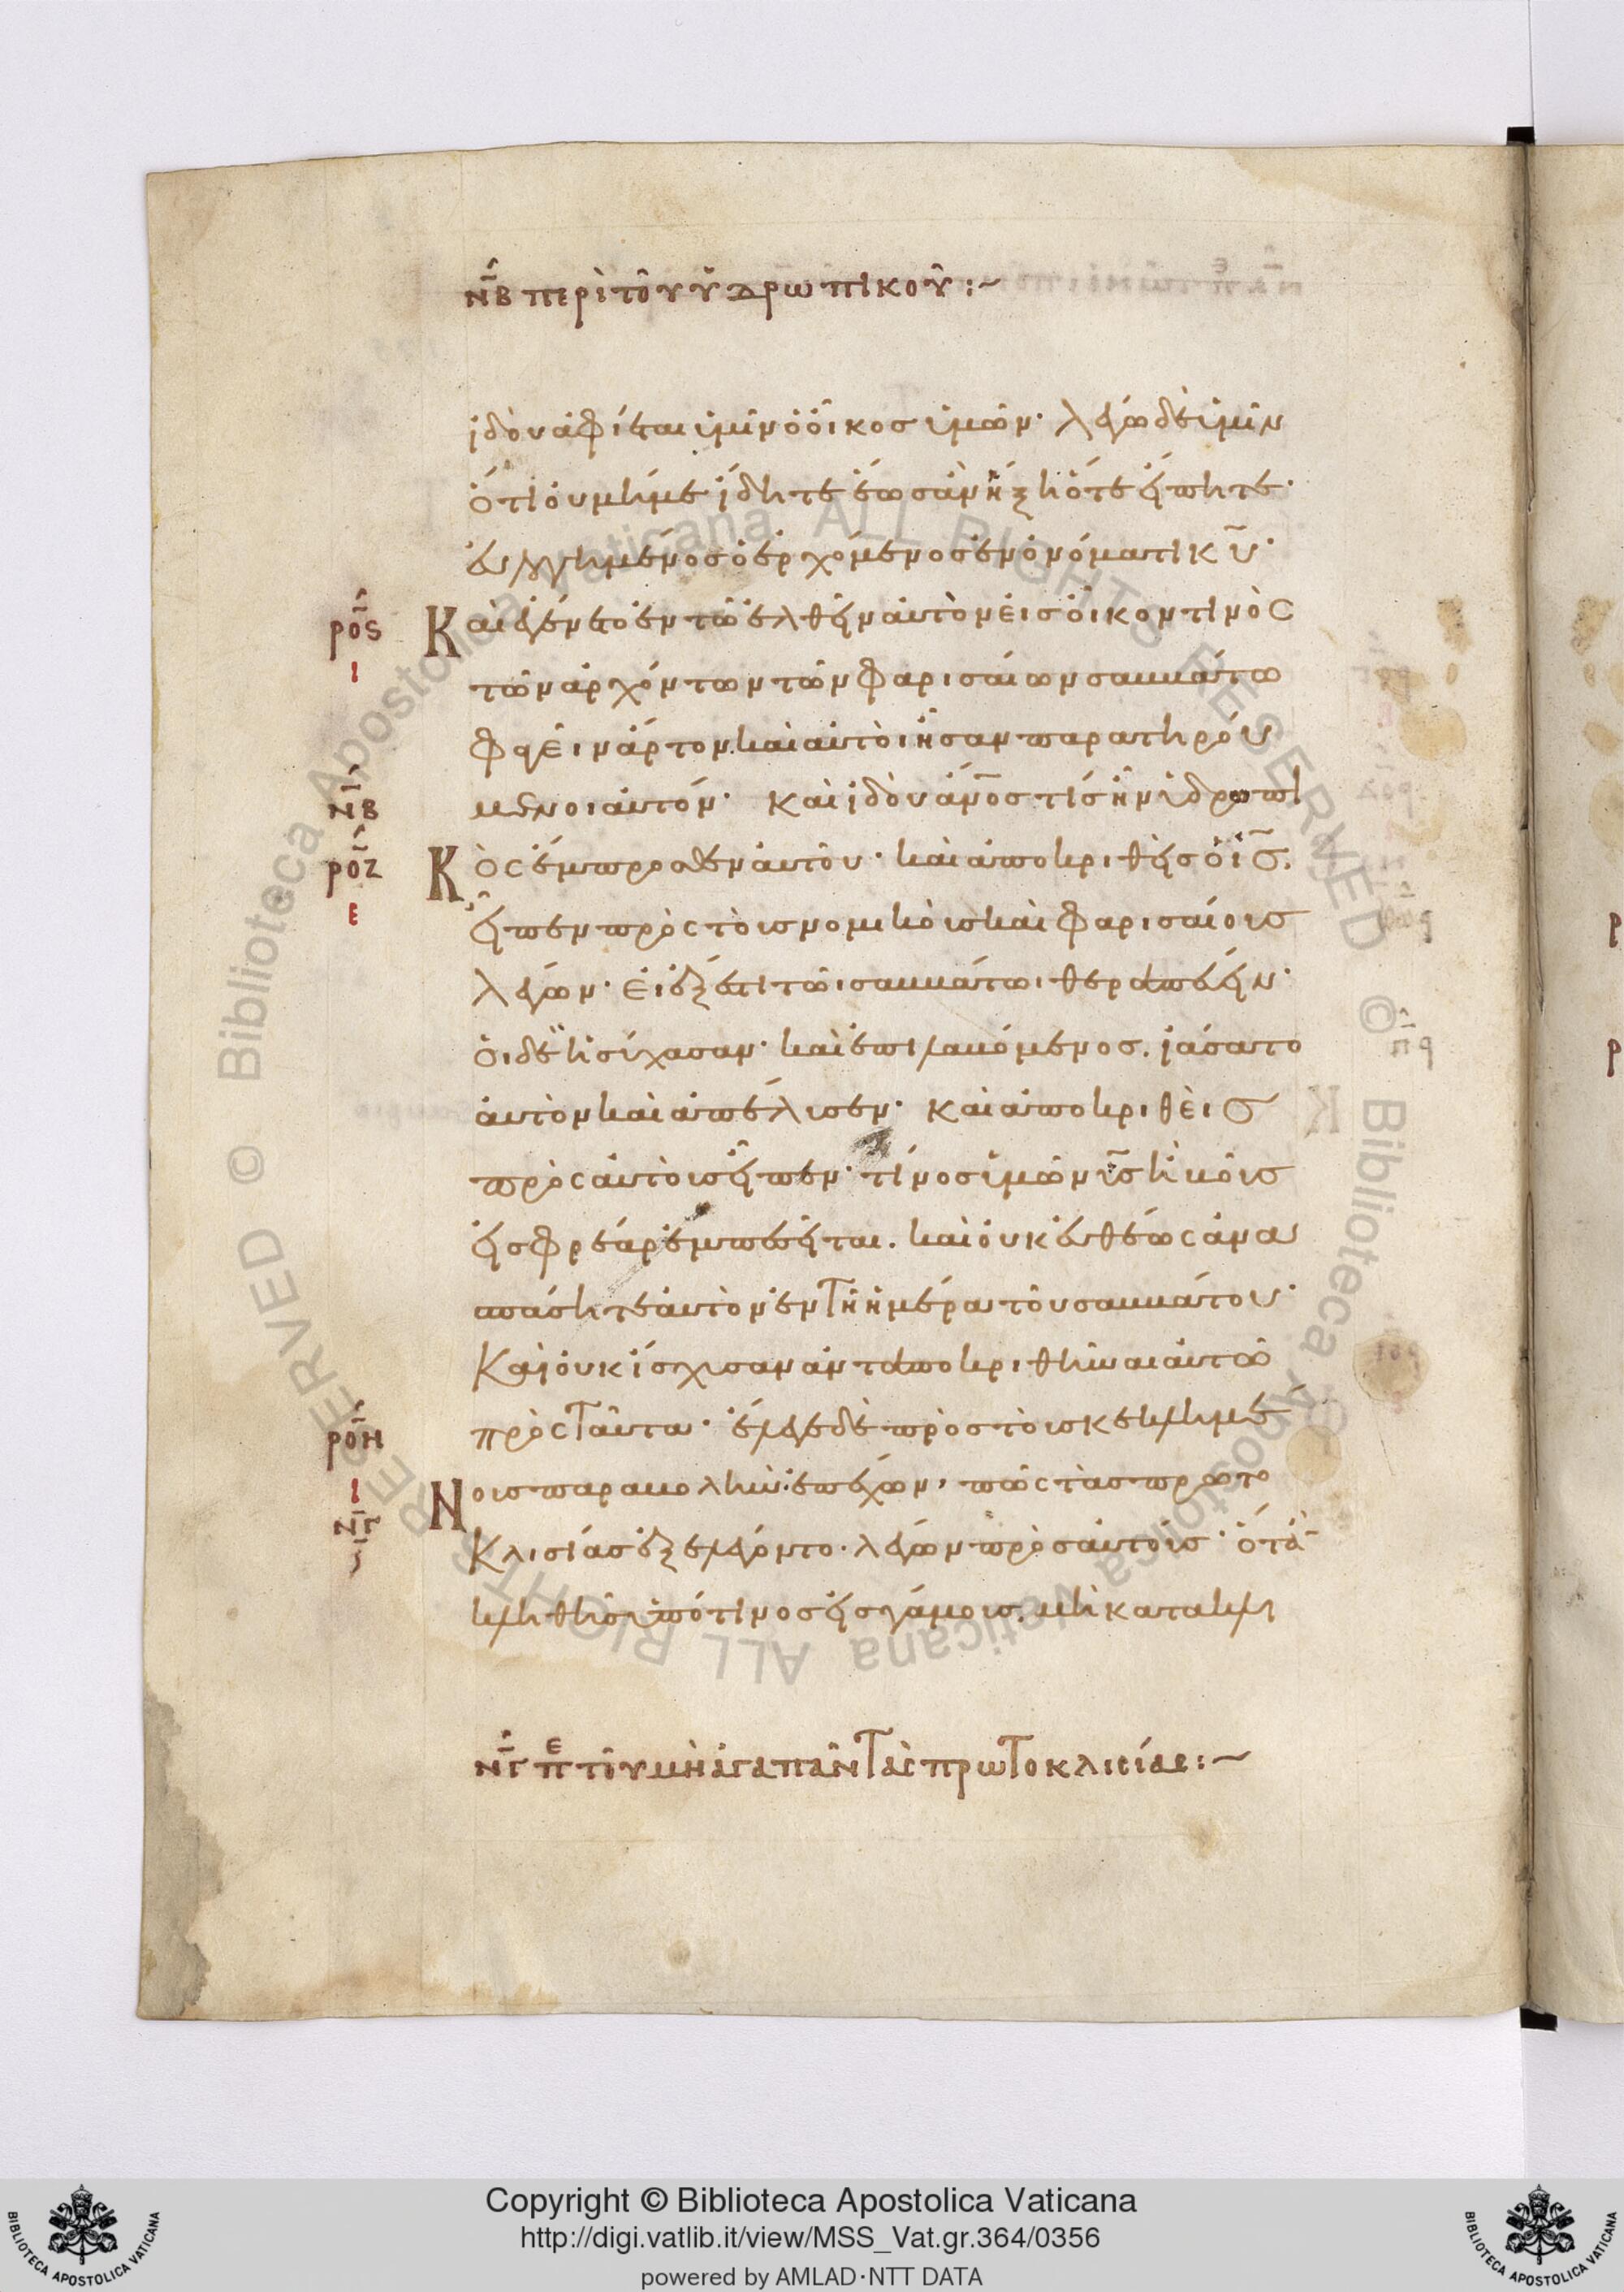 ν̅β̅ περὶ τοῦ ὑδρωπικοῦ :~
ἰδοὺ ἀφίεται ὑμῖν ὁ οἶκος ὑμῶν· λέγω δὲ ὑμῖν
ὅτι οὐ μή με ἴδητε ἕως ἂν ἥξη ὅτε εἴπητε·
εὐλογημένος ὁ ἐρχόμενος ἐν ὀνόματι κ̅υ̅·
ρ̅ο̅ς̅ Και ἐγένετο ἐν τῶ ἐλθεῖν αὐτὸν εἰς οἶκον τινὸς
ι τῶν ἀρχόντων τῶν φαρισαίων σαββάτω
φαγεῖν ἄρτον. καὶ αὐτοὶ ἦσαν παρατηρού
ν̅β̅ μενοι αὐτόν· καὶ ἰδοὺ ἄν̅ο̅ς τίς ἦν ὑδρωπι
ρ̅ο̅ζ̅ Κὸς ἔμπροσθεν αὐτοῦ· καὶ ἀποκριθεὶς ὁ ι̅ς̅.
ε εἶπεν πρὸς τοὺς νομικοὺς καὶ φαρισαίους
λέγων· εἰ ἔξεστι τῶι σαββάτωι θεραπεύειν·
οἱ δὲ ἡσύχασαν· καὶ ἐπιλαβόμενος. ἰάσατο
αὐτὸν καὶ ἀπέλυσεν· καὶ ἀποκριθεὶς
πρὸς αὐτοὺς εἶπεν· τίνος ὑμῶν υ̅ς̅ ἢ βοῦς
εἰς φρέαρ ἐμπεσεῖται. καὶ οὐκ εὐθέως ἀνα
σπάσητε αὐτὸν ἐν τῆ ἡμέρα τοῦ σαββάτου·
Και οὐκ ἴσχυσαν ἀνταποκριθῆναι αὐτῶ
ρ̅ο̅η̅ πρὸς ταῦτα· ἔλεγε δὲ πρὸς τοὺς κεκλημέ
ι Νους παραβολὴν. ἐπέχων, πῶς τὰς πρωτο
ν̅γ̅ Κλισίας ἐξελέγοντο· λέγων πρὸς αὐτούς· ὅτα̅
κληθῆς ὑπό τινος εἰς γάμους. μὴ κατακλι
ν̅γ̅ πε τοῦ μὴ ἀγαπᾶν τὰς πρωτοκλισίας :~
Copyright © Biblioteca Apostolica Vaticana
http://digi.vatlib.it/view/MSS_Vat.gr.364/0356
powered by AMLAD·NTT DATA
BIBLIOTECA APOSTOLICA VATICANA
BIBLIOTECA APOSTOLICA VATICANA